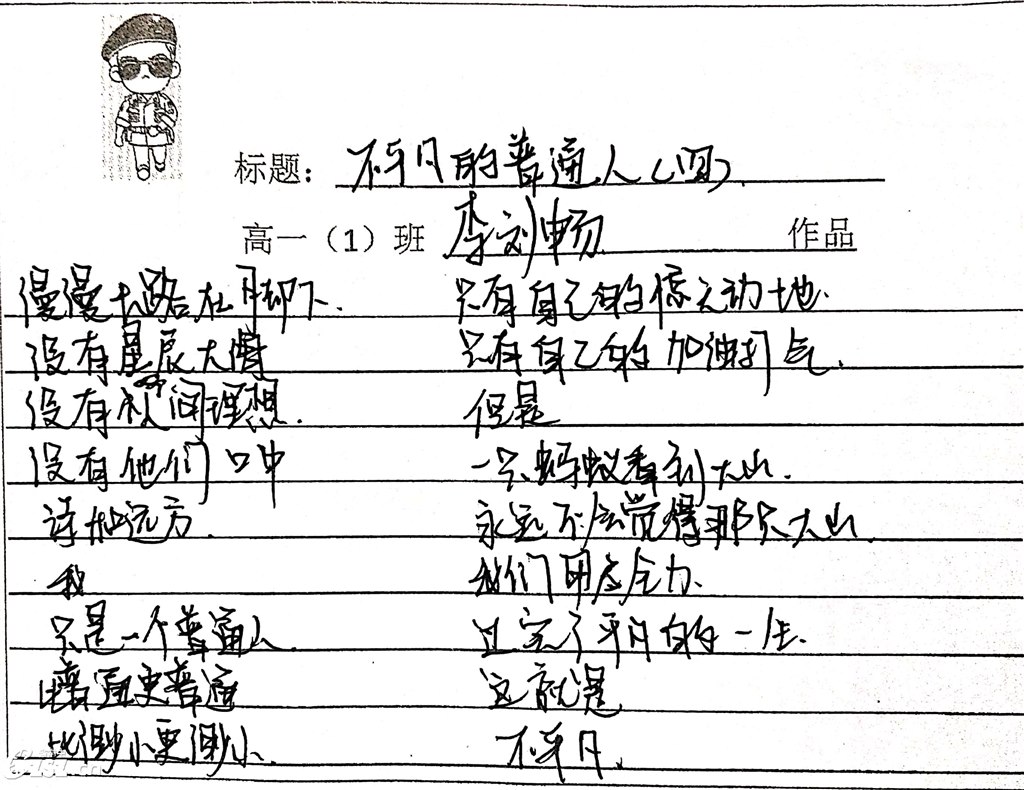 标题：不平凡的普通人（四）
高一（1）班 李刘畅 作品
漫漫大路在脚下．
没有星辰大海
没有人间理想．
没有他们口中
诗和远方．
我
只是一个普通人．
比普通更普通
比渺小更渺小．
只有自己的惊天动地．
只有自己的加油打气．
但是
一只蚂蚁看到大山．
永远不会觉得那只大山．
我们用尽全力．
过完了平凡的一生．
这就是
不平凡．